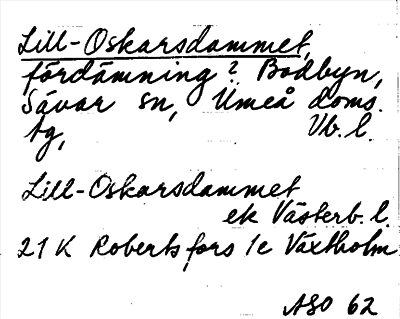 Lill-Oskarsdammet,
fördämning? Bodbyn,
Sävar sn, Umeå doms.
tg, Vb. l.
Lill-Oskarsdammet
ek Västerb. l.
21 K Robertsfors 1c Växtholm
ASO 62